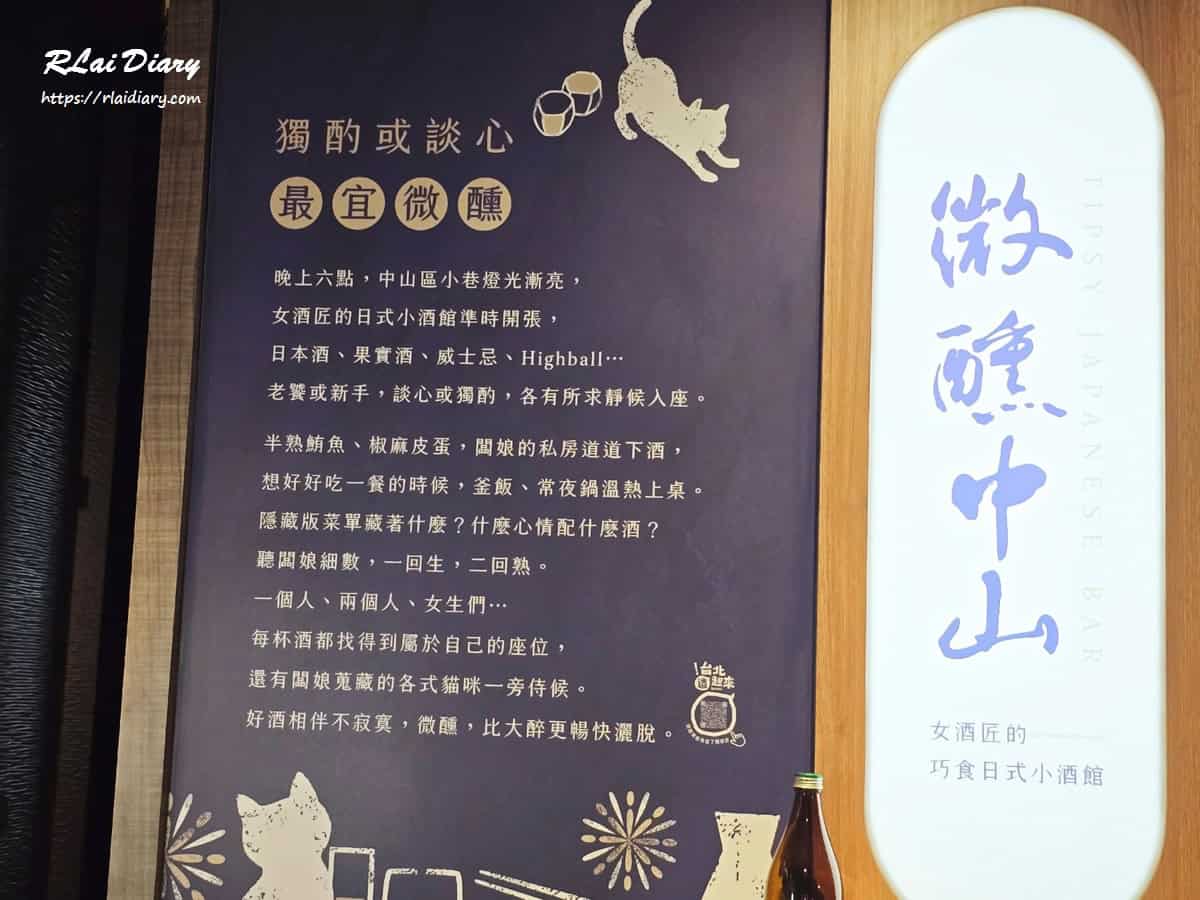 RLai Diary
https://rlaidiary.com
獨酌或談心
最宜微醺
晚上六點，中山區小巷燈光漸亮，
女酒匠的日式小酒館準時開張，
日本酒、果實酒、威士忌、Highball⋯
老饕或新手，談心或獨酌，各有所求靜候入座。
半熟鮪魚、椒麻皮蛋，闆娘的私房道道下酒，
想好好吃一餐的時候，釜飯、常夜鍋溫熱上桌。
隱藏版菜單藏著什麼？什麼心情配什麼酒？
聽闆娘細數，一回生，二回熟。
一個人、兩個人、女生們⋯
每杯酒都找得到屬於自己的座位，
還有闆娘蒐藏的各式貓咪一旁侍候。
好酒相伴不寂寞，微醺，比大醉更暢快灑脫。
台北
造起來
微醺中山
TIPSY JAPANESE BAR
女酒匠的
巧食日式小酒館